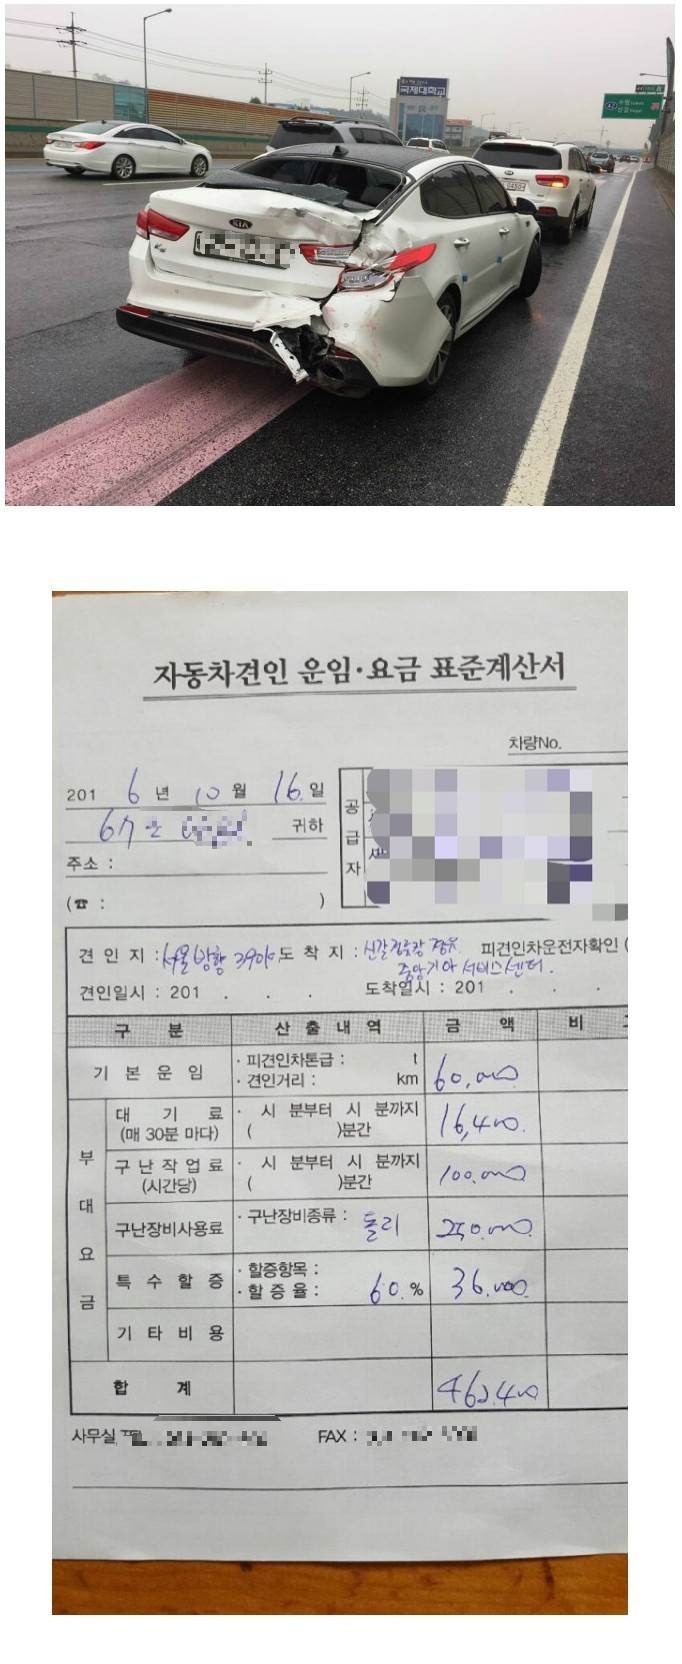 국제대학교
KIA
K5
자동차견인 운임·요금 표준계산서
차량No.
201 6 년 10 월 16. 일
귀하
주소 :
(☎ : )
공급자
견 인 지 : 서울방향 도 착 지 : 신갈정류장 경유 피견인차운전자확인 (
중앙기아 서비스센터.
견인일시 : 201 . . . 도착일시 : 201 . . .
구 분 산 출 내 역 금 액 비
기 본 운 임 · 피견인차톤급 : t
· 견인거리 : km 60,000
부대요금
대 기 료 · 시 분부터 시 분까지 16,400.
(매 30분 마다) ( )분간
구 난 작 업 료 · 시 분부터 시 분까지 100.000
(시간당) ( )분간
구난장비사용료 · 구난장비종류 : 돌리 250.000
특 수 할 증 · 할증항목 :
· 할 증 율 : 60. % 36.000
기 타 비 용
합 계 462.400
사무실 FAX :